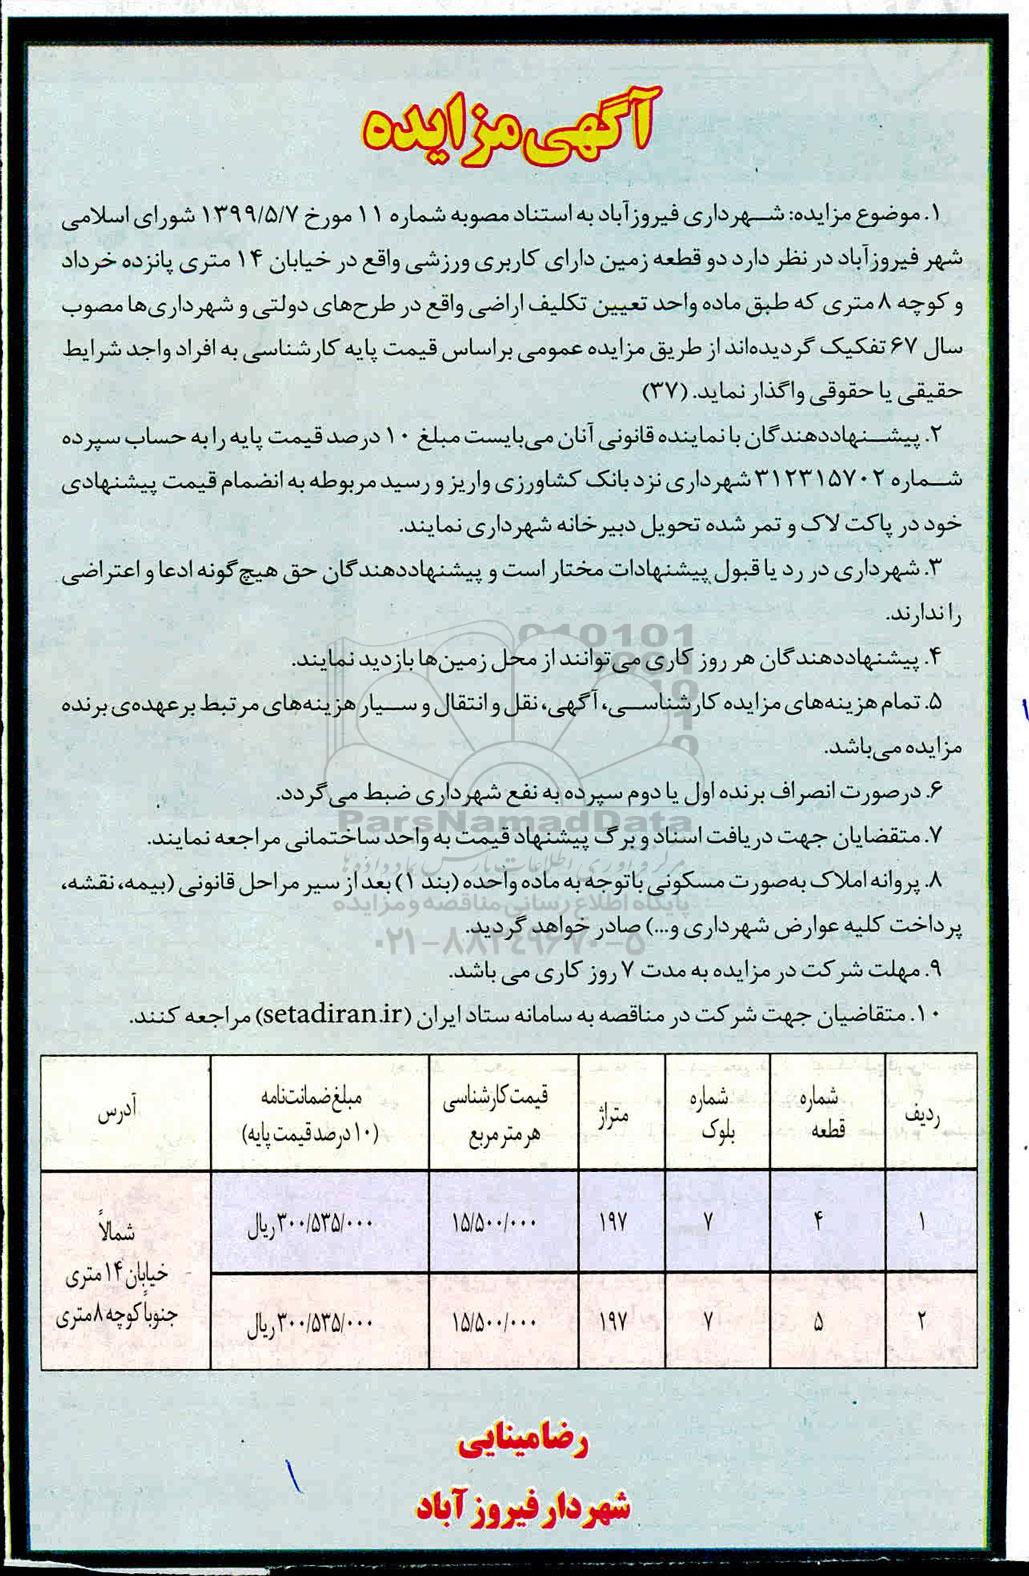 آگهی مزایده
۱. موضوع مزایده: شهرداری فیروزآباد به استناد مصوبه شماره ۱۱ مورخ ۱۳۹۹/۵/۷ شورای اسلامی
شهر فیروزآباد در نظر دارد دو قطعه زمین دارای کاربری ورزشی واقع در خیابان ۱۴ متری پانزده خرداد
و کوچه ۸ متری که طبق ماده واحد تعیین تکلیف اراضی واقع در طرح‌های دولتی و شهرداری‌ها مصوب
سال ۶۷ تفکیک گردیده‌اند از طریق مزایده عمومی براساس قیمت پایه کارشناسی به افراد واجد شرایط
حقیقی یا حقوقی واگذار نماید. (۳۷)
۲. پیشنهاددهندگان با نماینده قانونی آنان می‌بایست مبلغ ۱۰ درصد قیمت پایه را به حساب سپرده
شماره ۳۱۲۳۱۵۷۰۲ شهرداری نزد بانک کشاورزی واریز و رسید مربوطه به انضمام قیمت پیشنهادی
خود در پاکت لاک و تمر شده تحویل دبیرخانه شهرداری نمایند.
۳. شهرداری در رد یا قبول پیشنهادات مختار است و پیشنهاددهندگان حق هیچ‌گونه ادعا و اعتراضی
را ندارند.
۴. پیشنهاددهندگان هر روز کاری می‌توانند از محل زمین‌ها بازدید نمایند.
۵. تمام هزینه‌های مزایده کارشناسی، آگهی، نقل و انتقال و سیار هزینه‌های مرتبط برعهده‌ی برنده
مزایده می‌باشد.
۶. درصورت انصراف برنده اول یا دوم سپرده به نفع شهرداری ضبط می‌گردد.
ParsNamadData
۷. متقضایان جهت دریافت اسناد و برگ پیشنهاد قیمت به واحد ساختمانی مراجعه نمایند.
۸. پروانه املاک به‌صورت مسکونی باتوجه به ماده واحده (بند ۱) بعد از سیر مراحل قانونی (بیمه، نقشه،
پایگاه اطلاع رسانی مناقصه و مزایده
پرداخت کلیه عوارض شهرداری و...) صادر خواهد گردید.
۰۲۱-۸۸۳۴۹۶۷۰-۵
۹. مهلت شرکت در مزایده به مدت ۷ روز کاری می باشد.
۱۰. متقاضیان جهت شرکت در مناقصه به سامانه ستاد ایران (setadiran.ir) مراجعه کنند.
ردیف شماره قطعه شماره بلوک متراژ قیمت کارشناسی هر متر مربع مبلغ ضمانت‌نامه (۱۰ درصد قیمت پایه) آدرس
۱ ۴ ۷ ۱۹۷ ۱۵/۵۰۰/۰۰۰ ۳۰۰/۵۳۵/۰۰۰ ریال
۲ ۵ ۷ ۱۹۷ ۱۵/۵۰۰/۰۰۰ ۳۰۰/۵۳۵/۰۰۰ ریال
شمالاً
خیابان ۱۴ متری
جنوباً کوچه ۸ متری
رضا مینایی
شهردار فیروزآباد